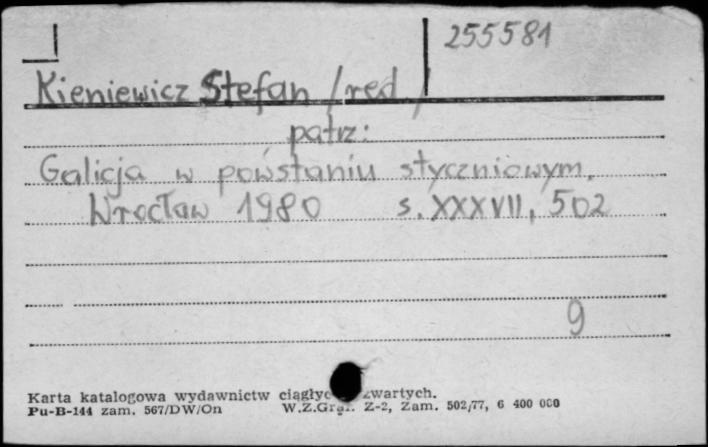 255581
Kieniewicz Stefan /red/
patrz:
Galicja w powstaniu styczniowym.
Wrocław 1980 s. XXXVII, 502
9
Karta katalogowa wydawnictw zwartych.
Pu-B-144 zam. 567/DW/On W.Z.Graf. Z-2, Zam. 502/77, 6 400 000